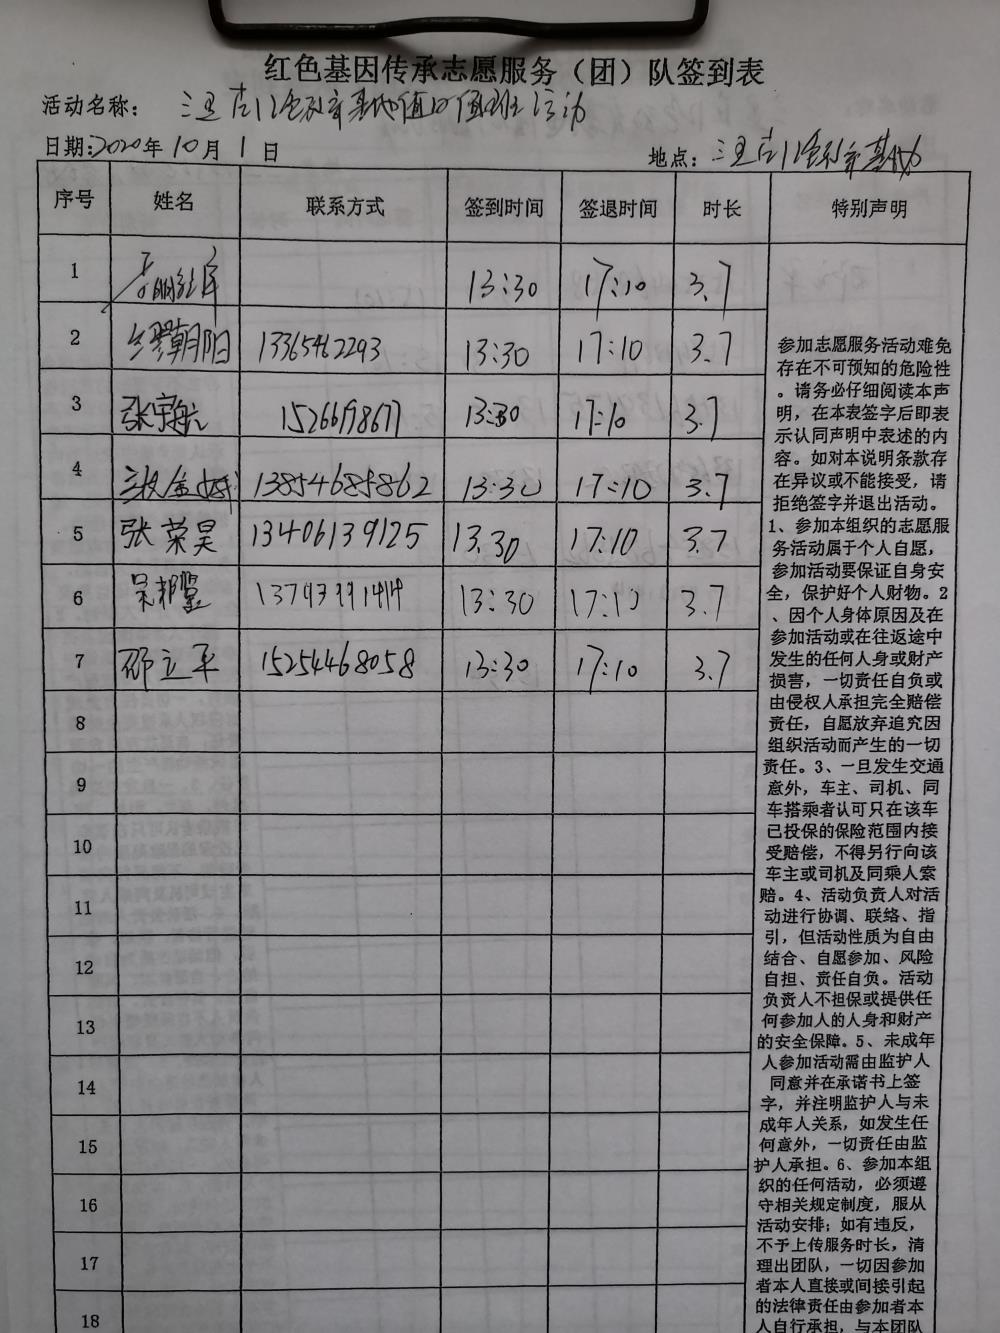 红色基因传承志愿服务（团）队签到表
活动名称： 三里庄
日期:2020年10月1日
地点：三里庄
序号 姓名 联系方式 签到时间 签退时间 时长 特别声明
1 13:30 17:10 3.7
2 缪朝阳 13365462293 13:30 17:10 3.7
3 张宇航 13:30 17:10 3.7
4 13854685862 13:30 17:10 3.7
5 张荣昊 13406139125 13.30 17:10 3.7
6 13793991414 13:30 17:10 3.7
7 邵立平 15254468058 13:30 17:10 3.7
8
9
10
11
12
13
14
15
16
17
18
参加志愿服务活动难免
存在不可预知的危险性
。请务必仔细阅读本声
明，在本表签字后即表
示认同声明中表述的内
容。如对本说明条款存
在异议或不能接受，请
拒绝签字并退出活动。
1、参加本组织的志愿服
务活动属于个人自愿，
参加活动要保证自身安
全，保护好个人财物。2
、因个人身体原因及在
参加活动或在往返途中
发生的任何人身或财产
损害，一切责任自负或
由侵权人承担完全赔偿
责任，自愿放弃追究因
组织活动而产生的一切
责任。3、一旦发生交通
意外，车主、司机、同
车搭乘者认可只在该车
已投保的保险范围内接
受赔偿，不得另行向该
车主或司机及同乘人索
赔。4、活动负责人对活
动进行协调、联络、指
引，但活动性质为自由
结合、自愿参加、风险
自担、责任自负。活动
负责人不担保或提供任
何参加人的人身和财产
的安全保障。5、未成年
人参加活动需由监护人
同意并在承诺书上签
字，并注明监护人与未
成年人关系，如发生任
何意外，一切责任由监
护人承担。6、参加本组
织的任何活动，必须遵
守相关规定制度，服从
活动安排；如有违反，
不予上传服务时长，清
理出团队，一切因参加
者本人直接或间接引起
的法律责任由参加者本
人自行承担，与本团队